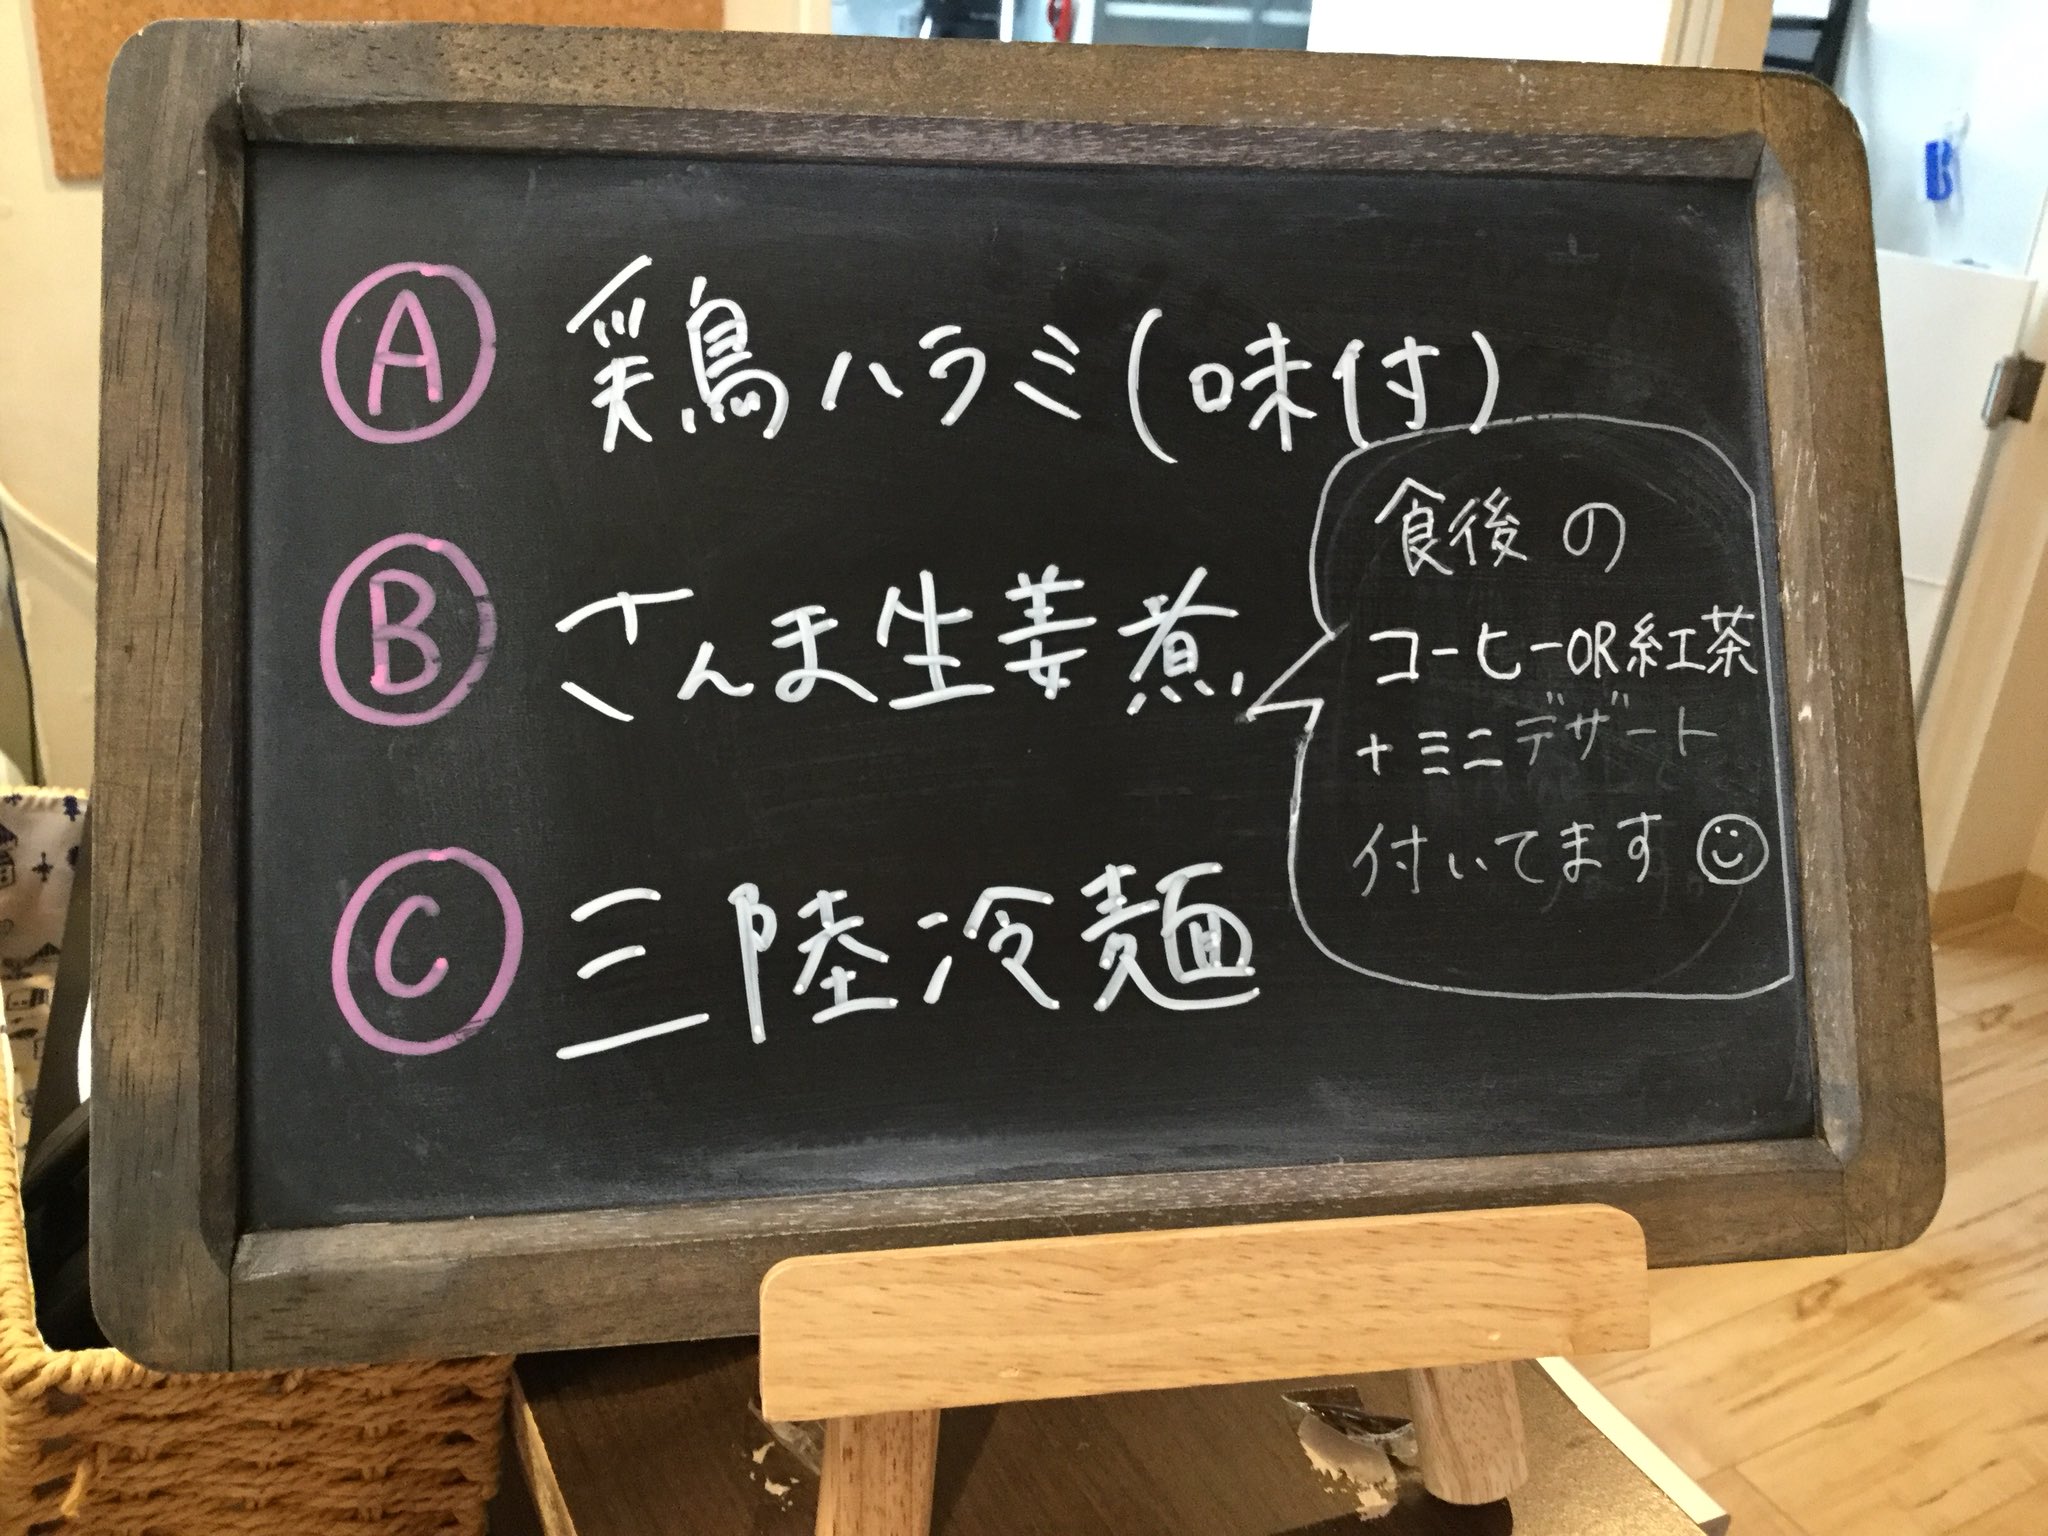 Ⓐ 鶏ハラミ(味付)
Ⓑ さんま生姜煮
Ⓒ 三陸冷麺
食後の
コーヒーOR紅茶
+ミニデザート
付いてます